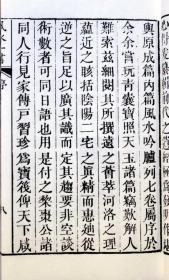 與原成篇內篇風水吟臚列七卷屬序於
余余嘗玩青囊寶照天玉諸篇竊歎解人
難索茲細閱其所撰遠之普萃河洛之理
蘊近之賅括陰陽二宅之眞精而惠廸從
逆之旨足以廣其識而定其趨要非空談
術數者可同日語也用是付之棃棗公諸
同人行見家傳戸習珍爲寶後俾天下咸